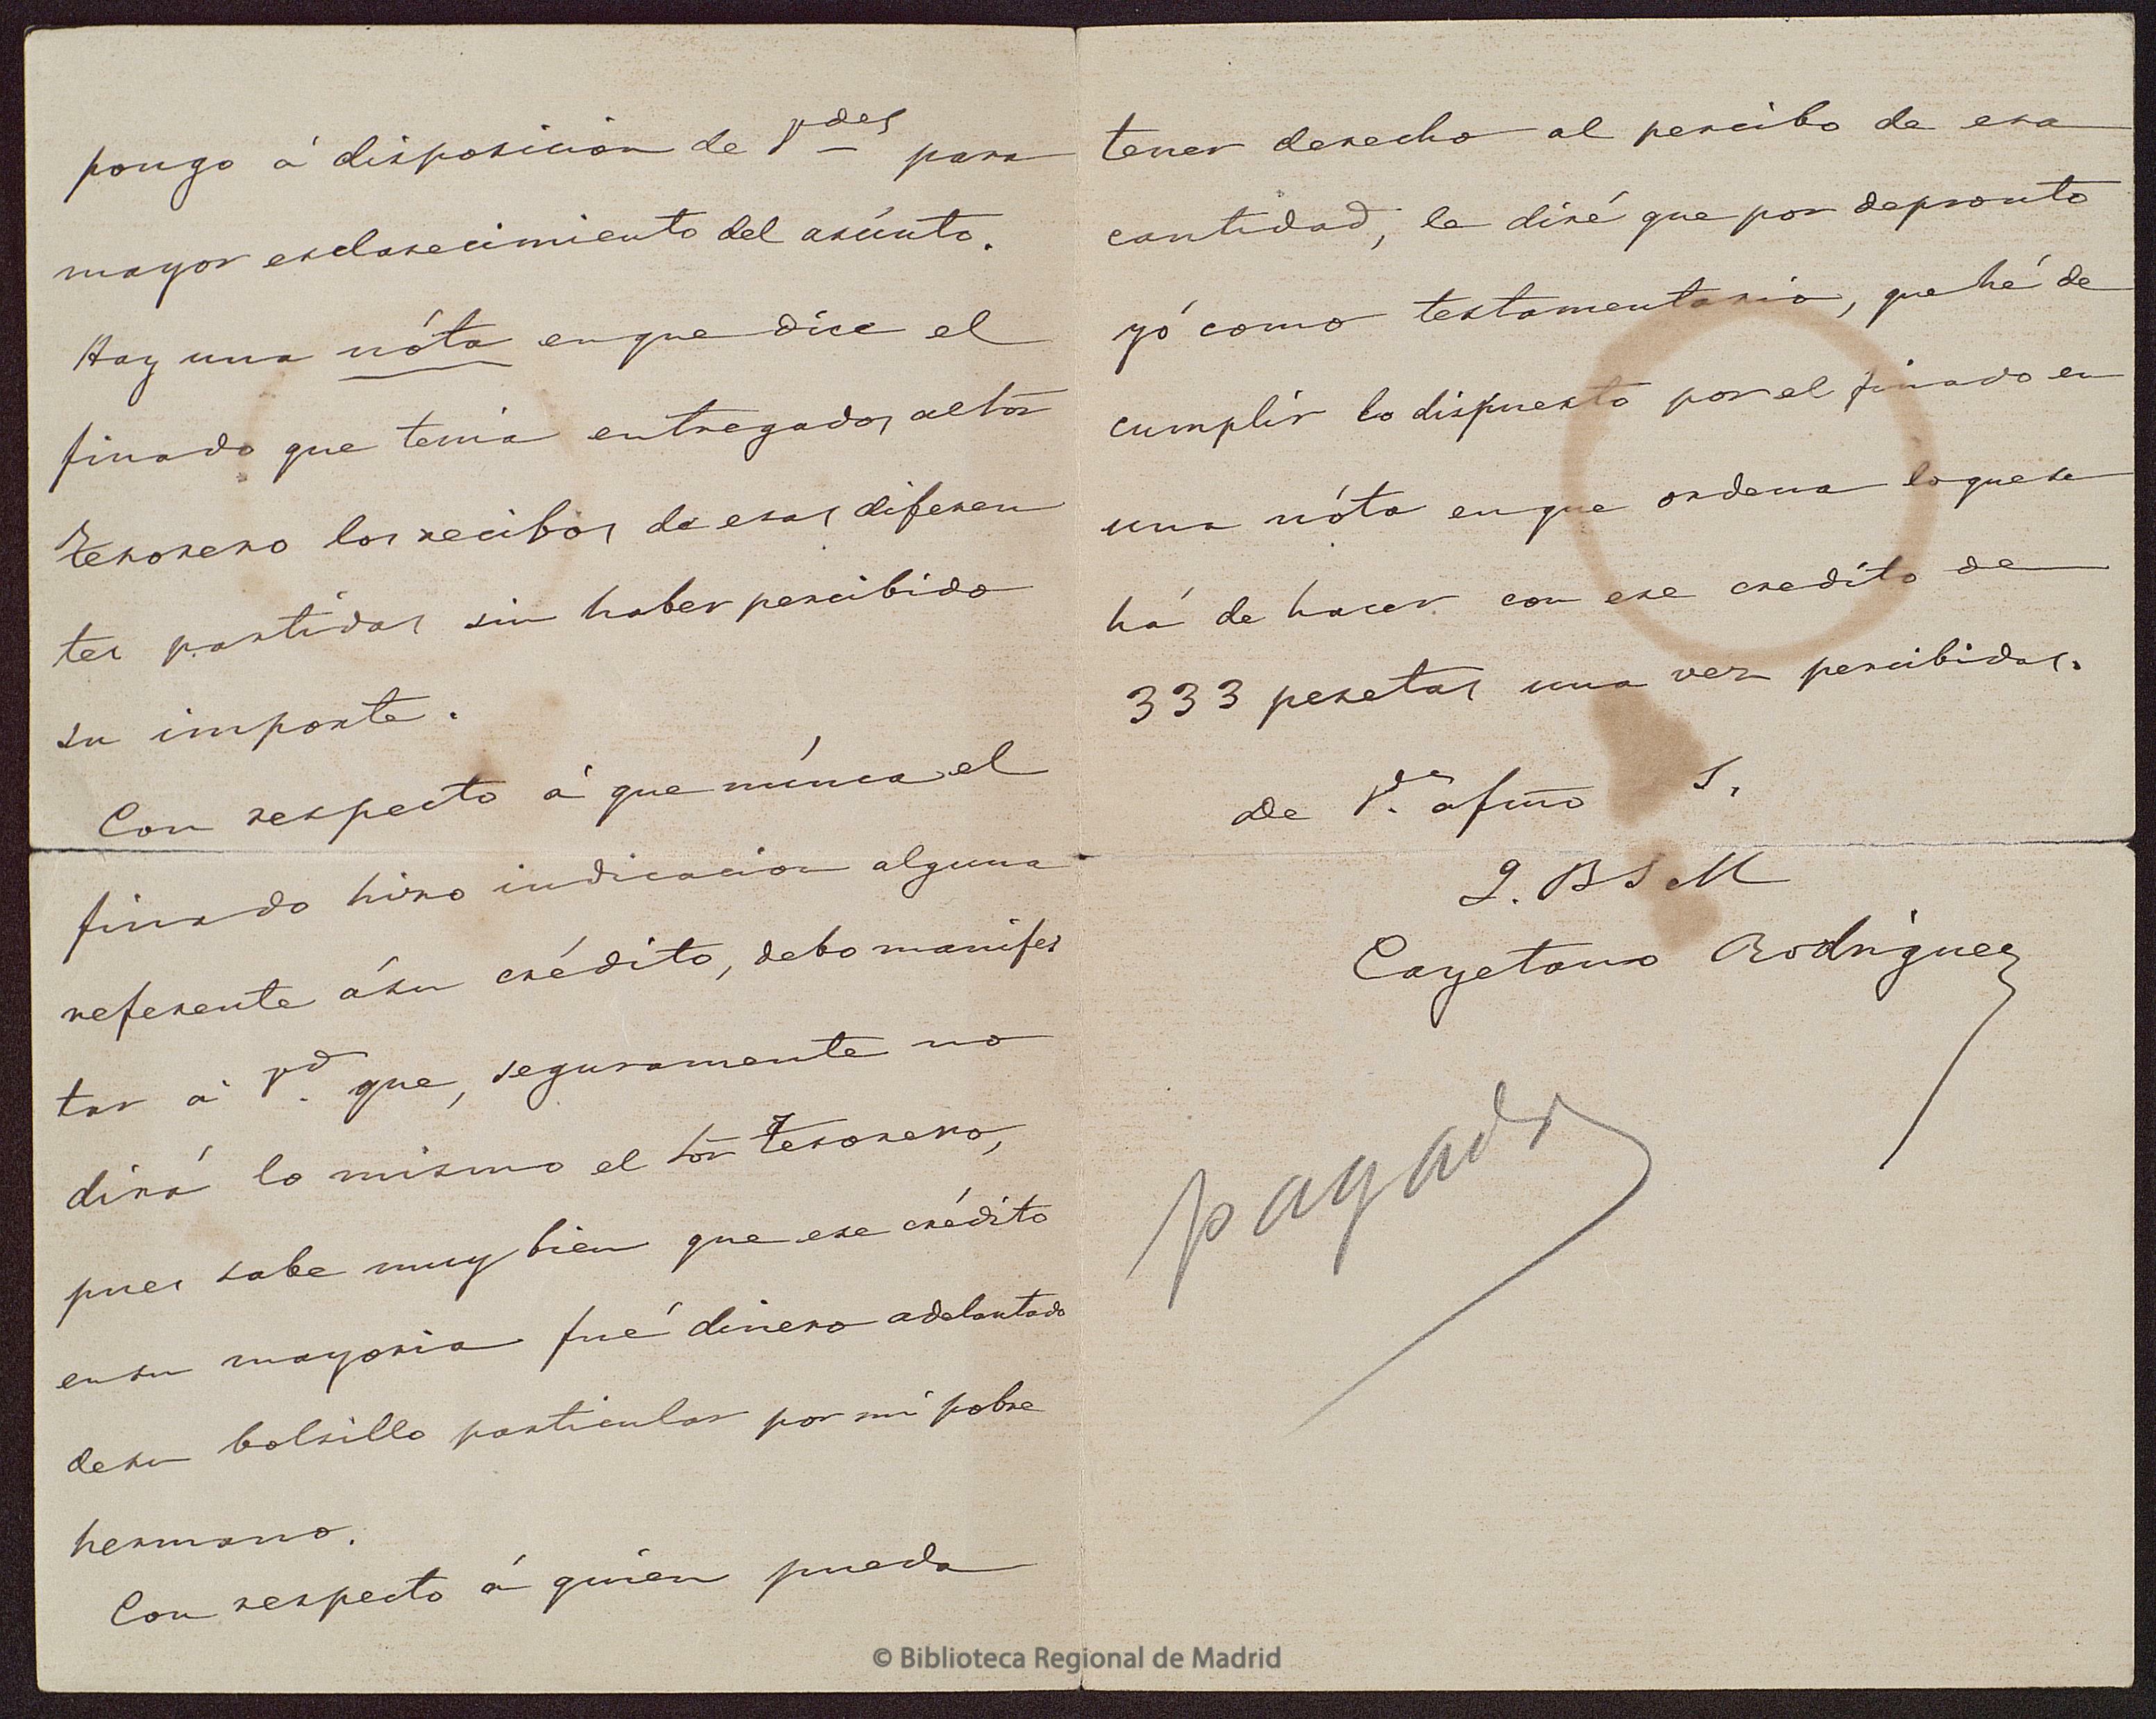 pongo á disposicion de Vdes para
mayor esclarecimiento del asúnto.
Hay una nóta enque dice el
finado que tenia entregados al Sor
Tesorero los recibos de esas diferen
tes partidas sin haber percibido
su importe.
Con respecto á que núnca el
finado hizo indicacion alguna
referente ásu crédito, debo manifes
tar á Vd. que, seguramente no
dirá lo mismo el Sor Tesorero,
pues sabe muy bien que ese crédito
ensu mayoria fué dinero adelantado
desu bolsillo particular por mi pobre
hermano.
Con respecto á quien pueda
tener derecho al percibo de esa
cantidad, le diré que por depronto
yó como testamentario, que hé de
cumplir lo dispuesto por el finado en
una nóta enque ordena loquese
há de hacer con ese credito de
333 pesetas una vez percibidas.
De Vd. afmo S.
Q. B S M
Cayetano Rodriguez
pagado
© Biblioteca Regional de Madrid